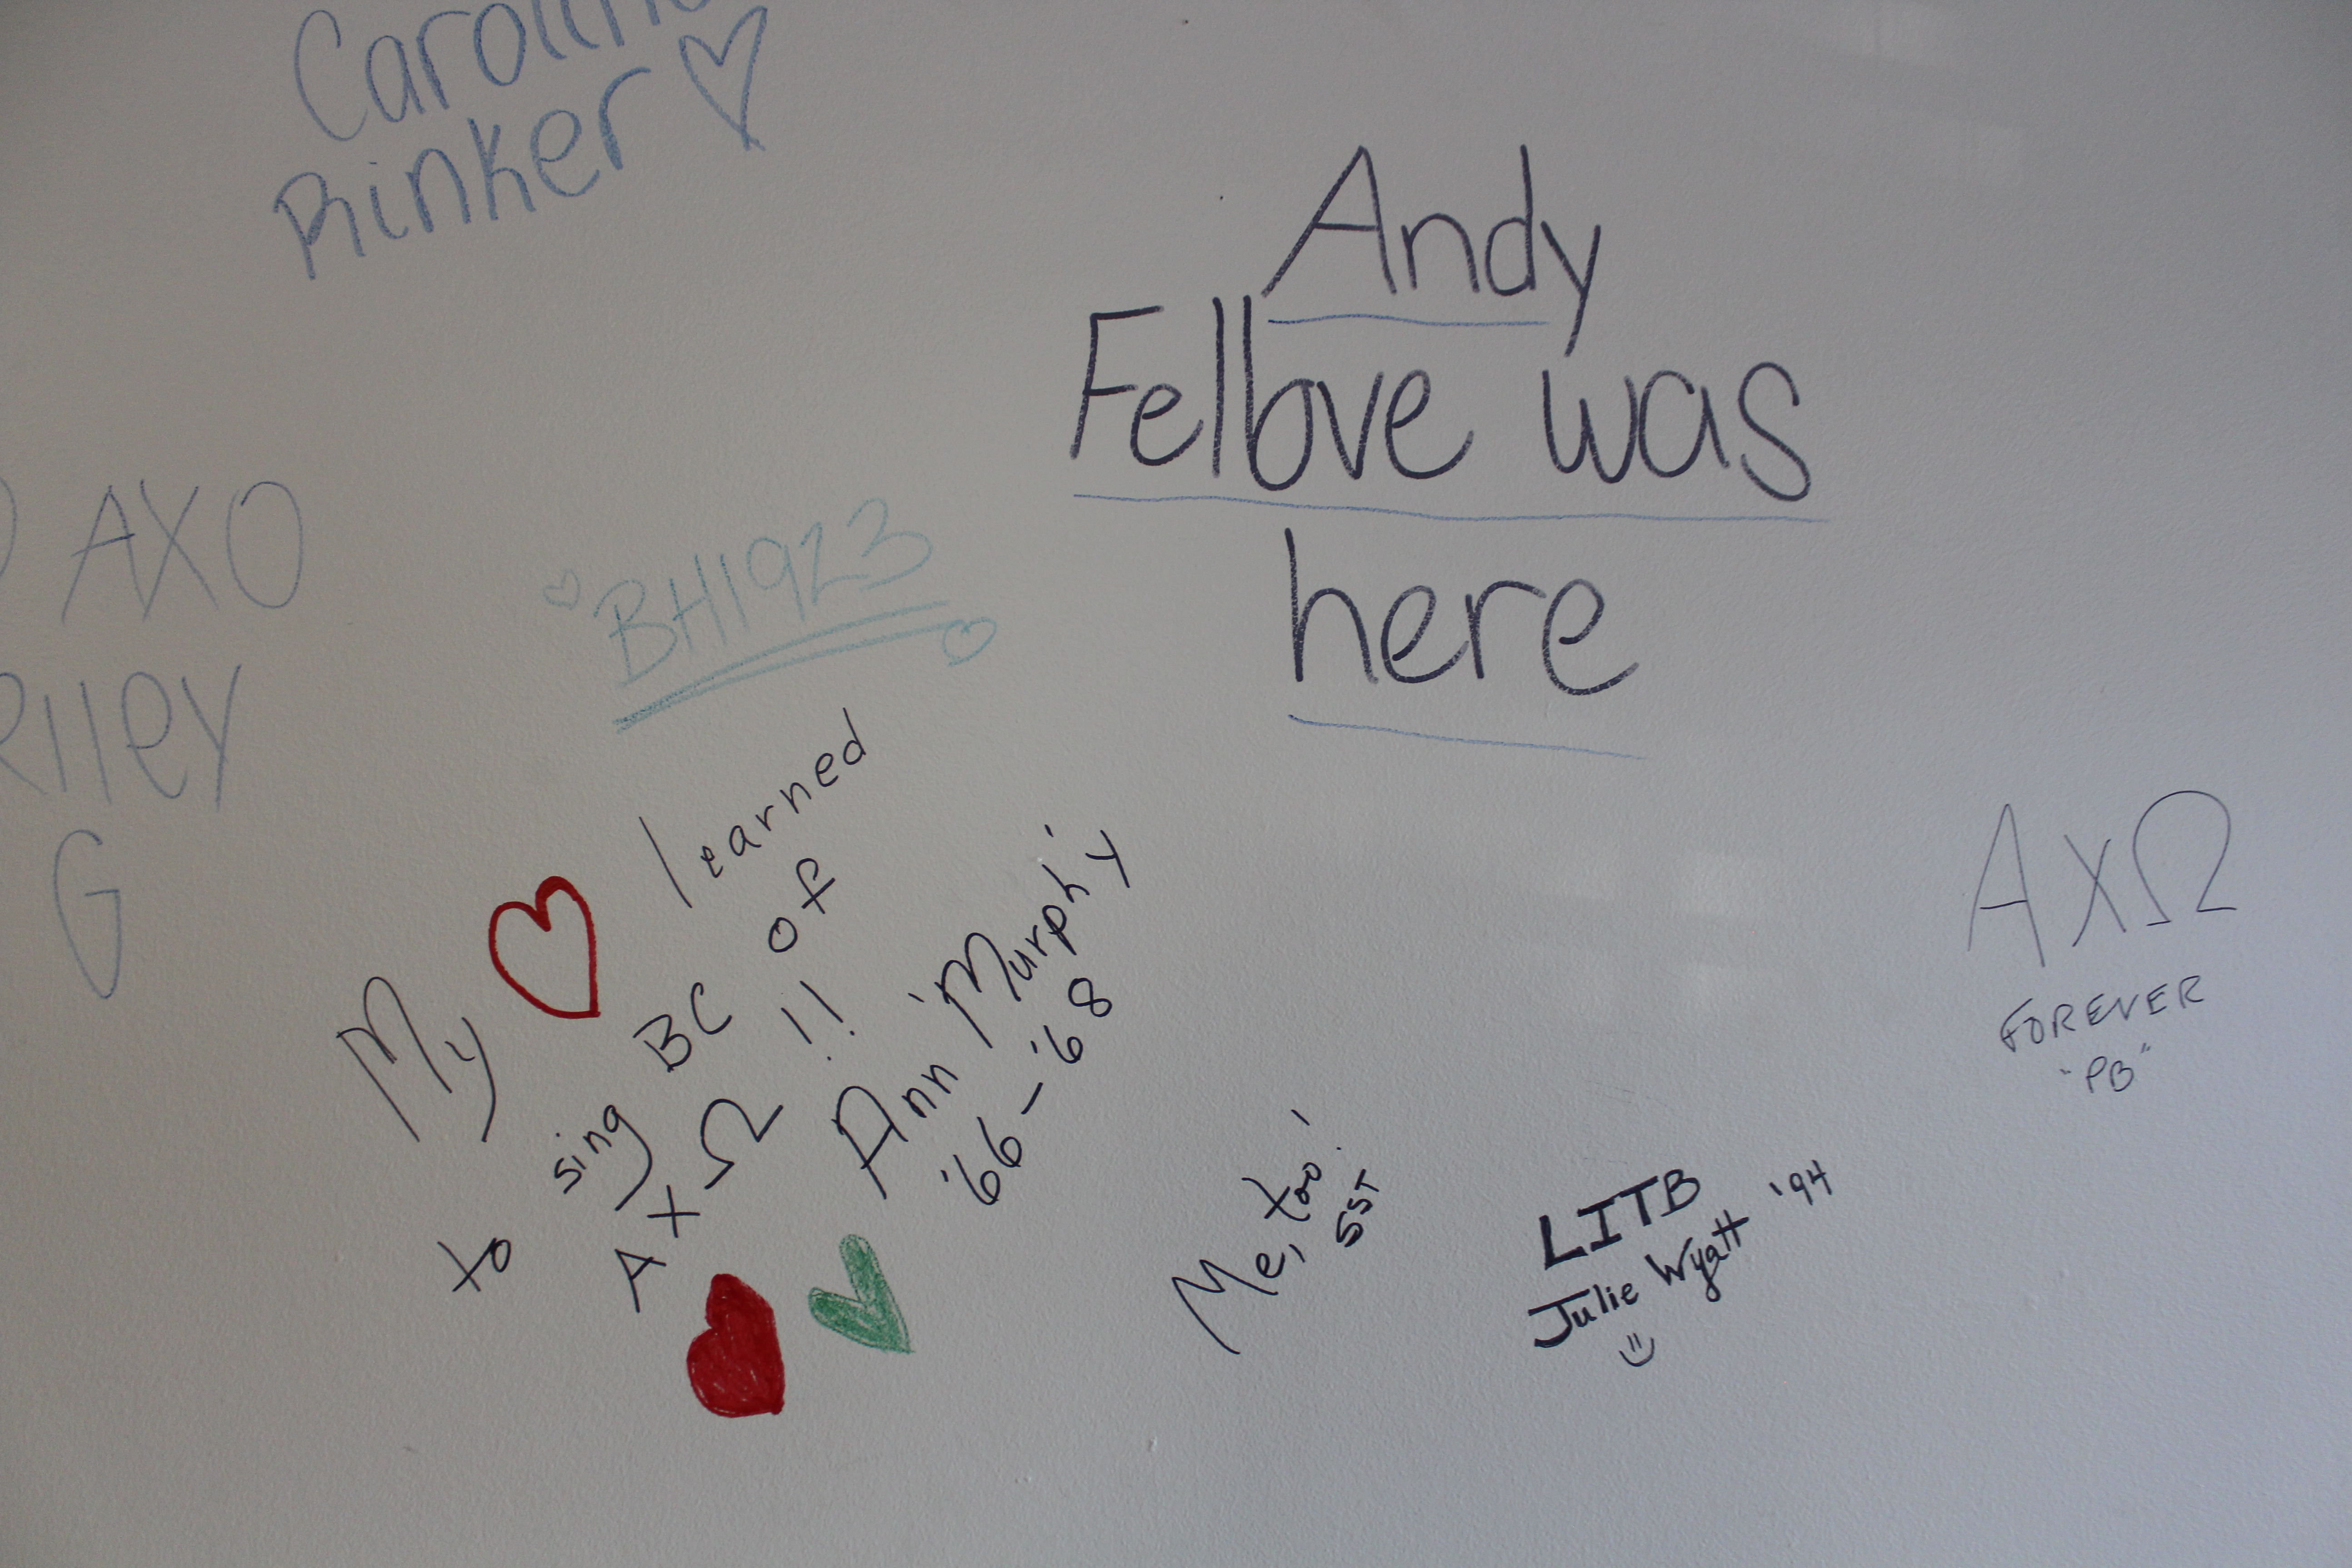 Rinker
Andy
Felbve was
here
AXO
BH1923
Riley
G
My learned
to sing BC of
AXΩ !!
Ann Murphy
'66-'68
AXΩ
FOREVER
"PB"
Me, too!
SST
LITB
Julie Wyatt '94